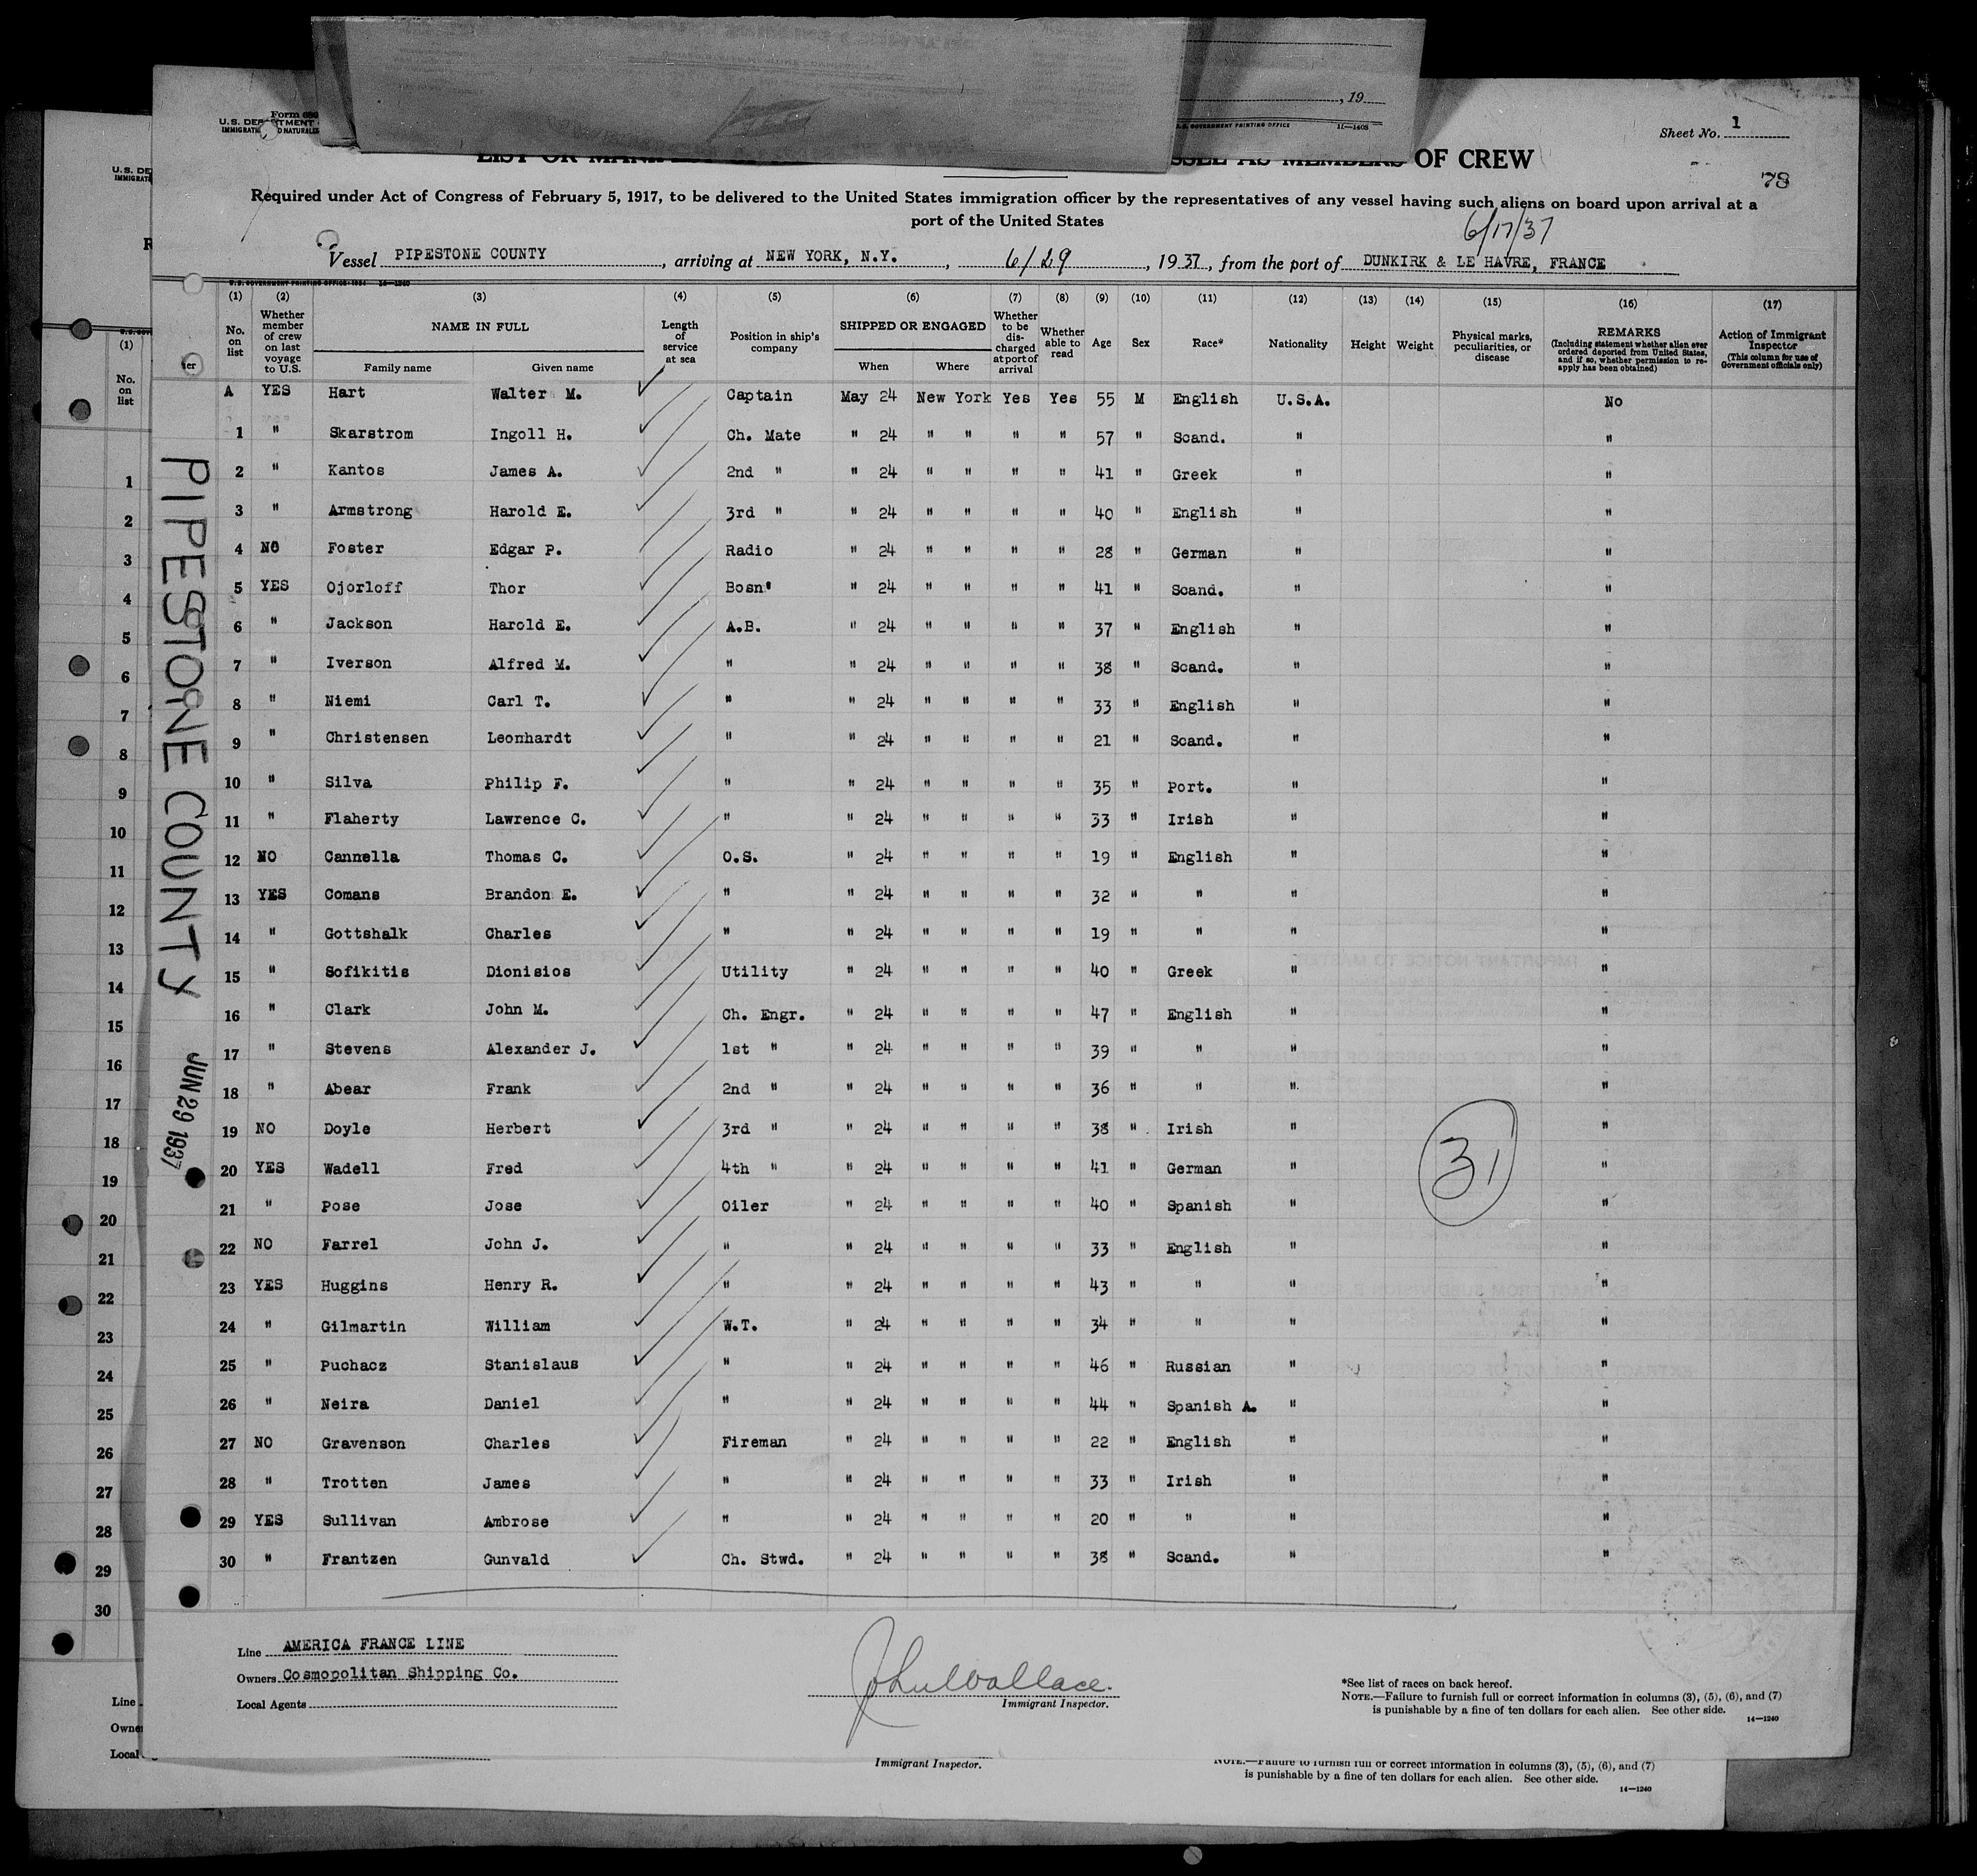 , 19
U.S. GOVERNMENT PRINTING OFFICE 11—1403
Form 680
U.S. DEPARTMENT
Sheet No. 1
LIST OR OF CREW
78
Required under Act of Congress of February 5, 1917, to be delivered to the United States immigration officer by the representatives of any vessel having such aliens on board upon arrival at a
port of the United States
6/17/37
Vessel PIPESTONE COUNTY, arriving at NEW YORK, N.Y., 6/29, 1937, from the port of DUNKIRK & LE HAVRE, FRANCE
(1) (2) (3) (4) (5) (6) (7) (8) (9) (10) (11) (12) (13) (14) (15) (16) (17)
No. on list
Whether member of crew on last voyage to U.S.
NAME IN FULL
Family name Given name
Length of service at sea
Position in ship's company
SHIPPED OR ENGAGED
When Where
Whether to be discharged at port of arrival
Whether able to read
Age
Sex
Race*
Nationality
Height
Weight
Physical marks, peculiarities, or disease
REMARKS
(Including statement whether alien ever ordered deported from United States, and if so, whether permission to reapply has been obtained)
Action of Immigrant Inspector
(This column for use of Government officials only)
A YES Hart Walter M. Captain May 24 New York Yes Yes 55 M English U.S.A. No
1 " Skarstrom Ingoll H. Ch. Mate " 24 " " " " 57 " Scand. " "
2 " Kantos James A. 2nd " " 24 " " " " 41 " Greek " "
3 " Armstrong Harold E. 3rd " " 24 " " " " 40 " English " "
4 NO Foster Edgar P. Radio " 24 " " " " 28 " German " "
5 YES Ojorloff Thor Bosn' " 24 " " " " 41 " Scand. " "
6 " Jackson Harold E. A.B. " 24 " " " " 37 " English " "
7 " Iverson Alfred M. " " 24 " " " " 38 " Scand. " "
8 " Niemi Carl T. " " 24 " " " " 33 " English " "
9 " Christensen Leonhardt " " 24 " " " " 21 " Scand. " "
10 " Silva Philip F. " " 24 " " " " 35 " Port. " "
11 " Flaherty Lawrence C. " " 24 " " " " 33 " Irish " "
12 NO Cannella Thomas C. O.S. " 24 " " " " 19 " English " "
13 YES Comans Brandon E. " " 24 " " " " 32 " " " "
14 " Gottshalk Charles " " 24 " " " " 19 " " " "
15 " Sofikitis Dionisios Utility " 24 " " " " 40 " Greek " "
16 " Clark John M. Ch. Engr. " 24 " " " " 47 " English " "
17 " Stevens Alexander J. 1st " " 24 " " " " 39 " " " "
18 " Abear Frank 2nd " " 24 " " " " 36 " " " "
19 NO Doyle Herbert 3rd " " 24 " " " " 38 " Irish " "
20 YES Wadell Fred 4th " " 24 " " " " 41 " German " "
21 " Pose Jose Oiler " 24 " " " " 40 " Spanish " "
22 NO Farrel John J. " " 24 " " " " 33 " English " "
23 YES Huggins Henry R. " " 24 " " " " 43 " " " "
24 " Gilmartin William W.T. " 24 " " " " 34 " " " "
25 " Puchacz Stanislaus " " 24 " " " " 46 " Russian " "
26 " Neira Daniel " " 24 " " " " 44 " Spanish A. " "
27 NO Gravenson Charles Fireman " 24 " " " " 22 " English " "
28 " Trotten James " " 24 " " " " 33 " Irish " "
29 YES Sullivan Ambrose " " 24 " " " " 20 " " " "
30 " Frantzen Gunvald Ch. Stwd. " 24 " " " " 38 " Scand. " "
31
PIPESTONE COUNTY JUN 29 1937
Line AMERICA FRANCE LINE
Owners Cosmopolitan Shipping Co.
Local Agents
John Wallace.
Immigrant Inspector.
*See list of races on back hereof.
NOTE.—Failure to furnish full or correct information in columns (3), (5), (6), and (7)
is punishable by a fine of ten dollars for each alien. See other side.
14—1240
(1)
No. on list
1
2
3
4
5
6
7
8
9
10
11
12
13
14
15
16
17
18
19
20
21
22
23
24
25
26
27
28
29
30
Line
Owne
Local
Immigrant Inspector.
NOTE.—Failure to furnish full or correct information in columns (3), (5), (6), and (7)
is punishable by a fine of ten dollars for each alien. See other side.
14—1240